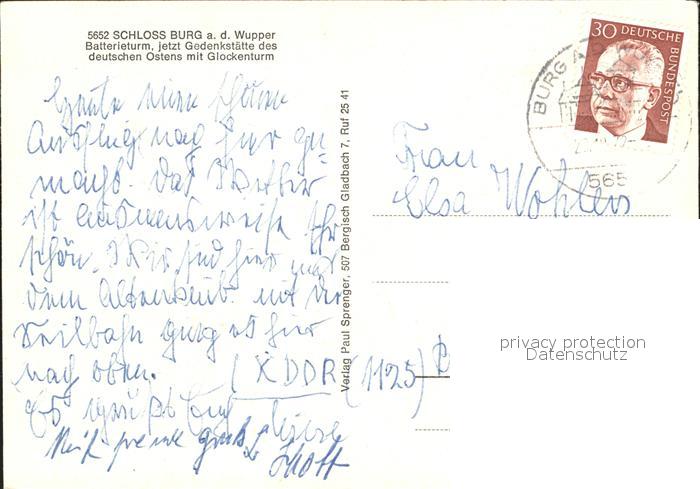 5652 SCHLOSS BURG a. d. Wupper
Batterieturm, jetzt Gedenkstätte des
deutschen Ostens mit Glockenturm
Heute einen schönen
Ausflug nach hier ge-
macht. Das Wetter
ist ausnahmsweise sehr
schön. Wir sind hier mit
dem Altenclub. mit der
Seilbahn ging es hier
nach oben.
Es grüßt
Verlag Paul Sprenger, 507 Bergisch Gladbach 7, Ruf 25 41
30 DEUTSCHE BUNDESPOST
BURG A
565
Frau
Elsa Wohlers
privacy protection
Datenschutz
(XDDR (1125)